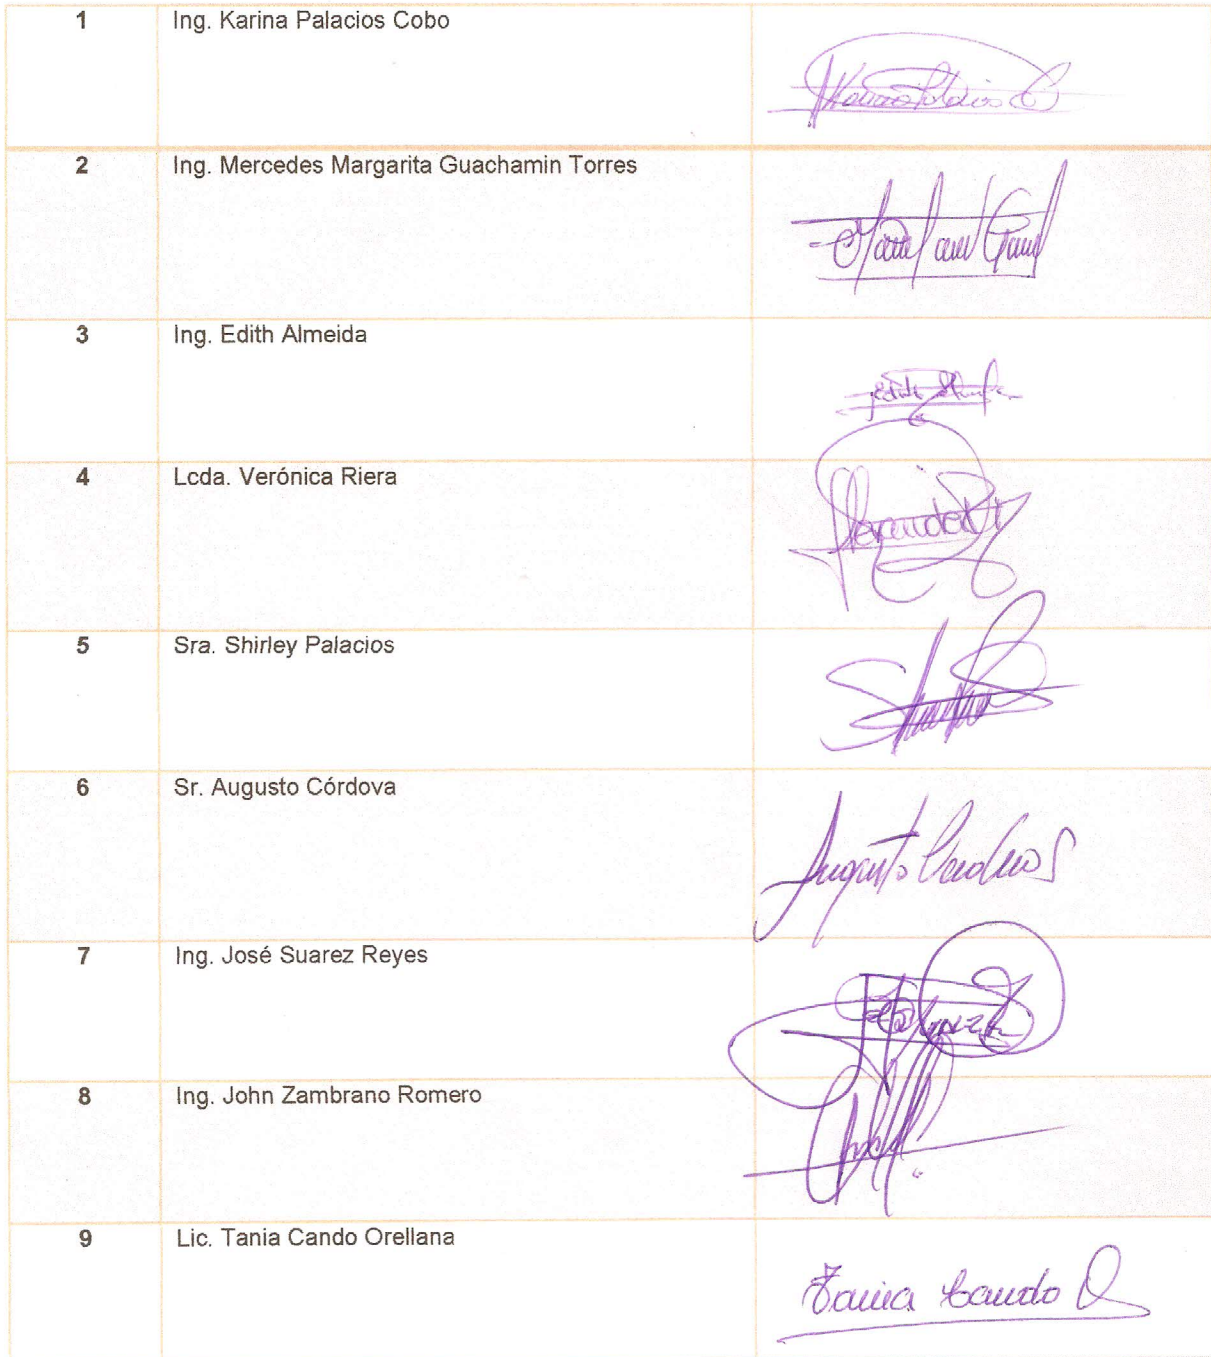 1 Ing. Karina Palacios Cobo
2 Ing. Mercedes Margarita Guachamin Torres
3 Ing. Edith Almeida
4 Lcda. Verónica Riera
5 Sra. Shirley Palacios
6 Sr. Augusto Córdova
Augusto
7 Ing. José Suarez Reyes
8 Ing. John Zambrano Romero
9 Lic. Tania Cando Orellana
Tania Cando O